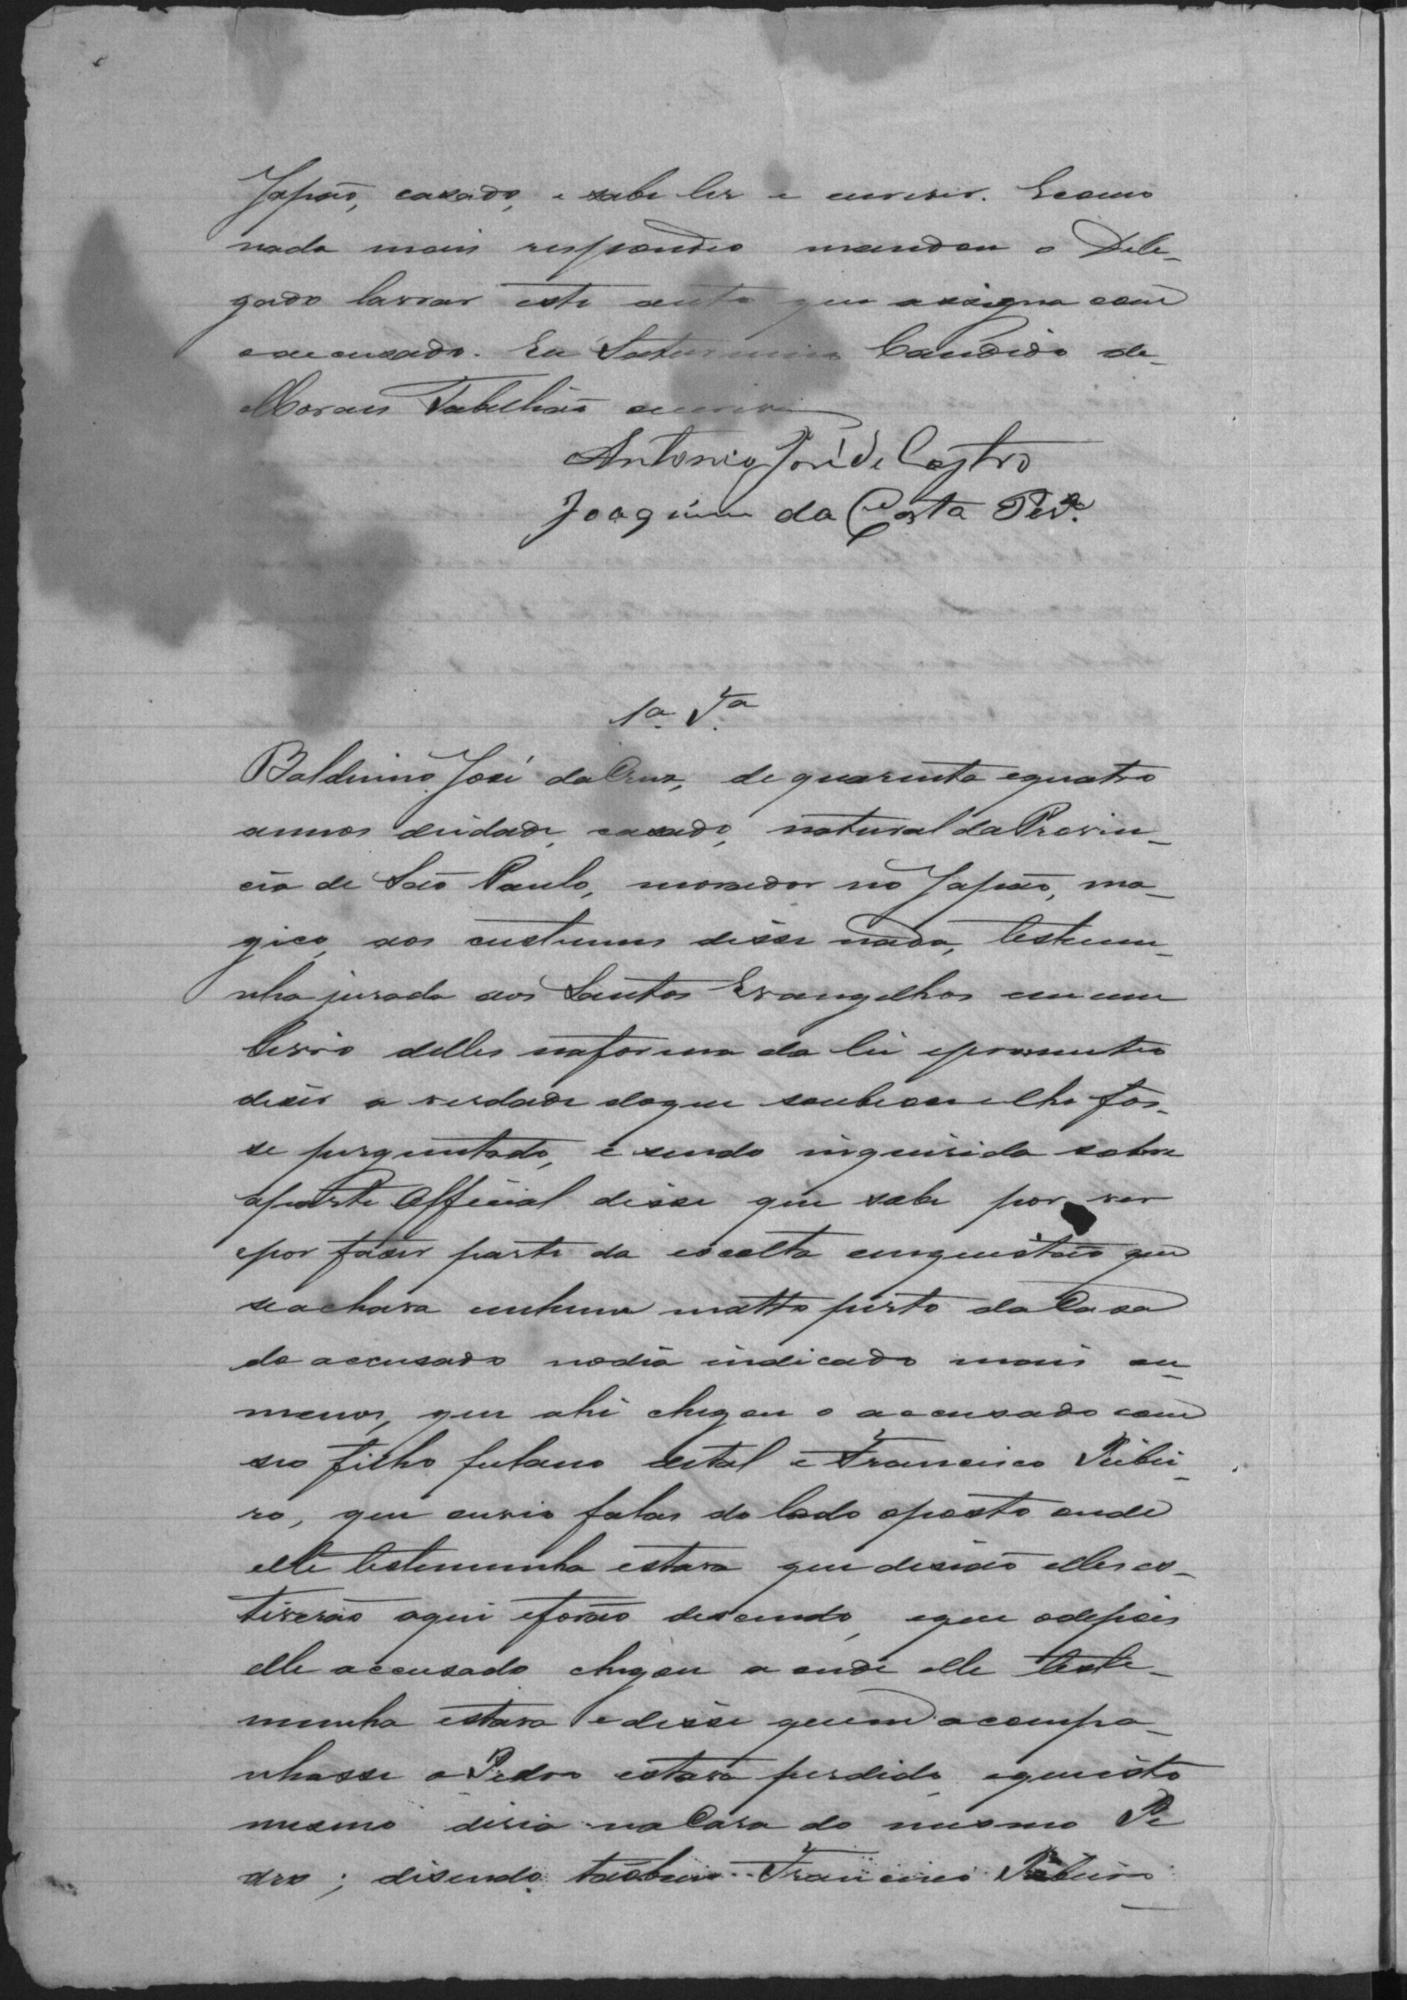 Japão, casado, e sabe ler e escrever. E como
nada mais respondeo mandou o Dele-
gado lavrar este auto que assigna com
o accusado. Eu Saturnino Candido de
Moraes Tabellião escrevi
Antonio José de Castro
Joaquim da Costa Per.ª
1ª. Tª.
Balduino José da Cruz, de quarenta e quatro
annos de idade, casado, natural da Provin-
cia de São Paulo, morador no Japão, ma-
gico, aos custumes disse nada, testemu-
nha jurada aos Santos Evangelhos em um
livro delles na forma da lei e prometteo
diser a verdade do que soubesse e lhe fos-
se perguntado, e sendo inquirida sobre
a parte Official disse que sabe por ver
e por faser parte da escolta em questão que
se achava em hum matto perto da Casa
do accusado no dia indicado mais ou
menos, que ahi chegou o accusado com
seo filho fulano de tal e Francisco Ribei-
ro, que ouvio falar do lado oposto onde
elle testemunha estava que disião elles es-
tiverão aqui e forão descendo, e que odepois
elle accusado chegou a onde elle teste-
munha estava e disse quem acompa-
nhasse o Pedro estava perdido, e que isto
mesmo diria na Casa do mesmo Pe
dro; disendo tãobem Francisco Ribeiro